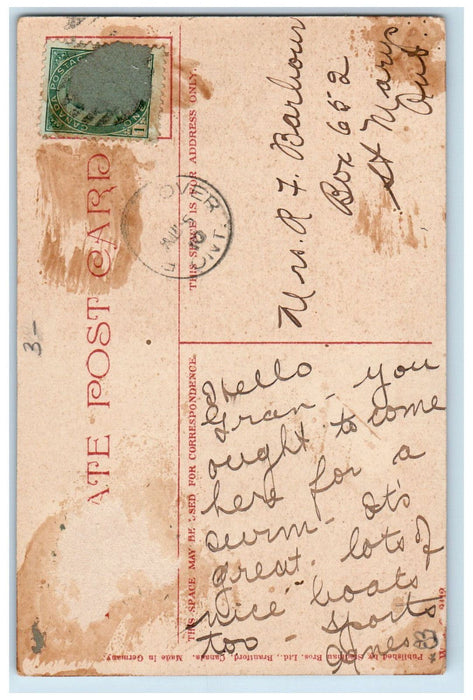 ATE POST CARD
CANADA POSTAGE
THIS SPACE IS FOR ADDRESS ONLY.
OVER
ONT.
Mrs. R. F. Barbour
Box 652
St Marys
Ont.
3-
THIS SPACE MAY BE USED FOR CORRESPONDENCE.
Hello
Gran - you
ought to come
here for a
swim - It's
great. lots of
nice boats
too - sports
Published by Stedman Bros. Ltd., Brantford, Canada. Made in Germany.